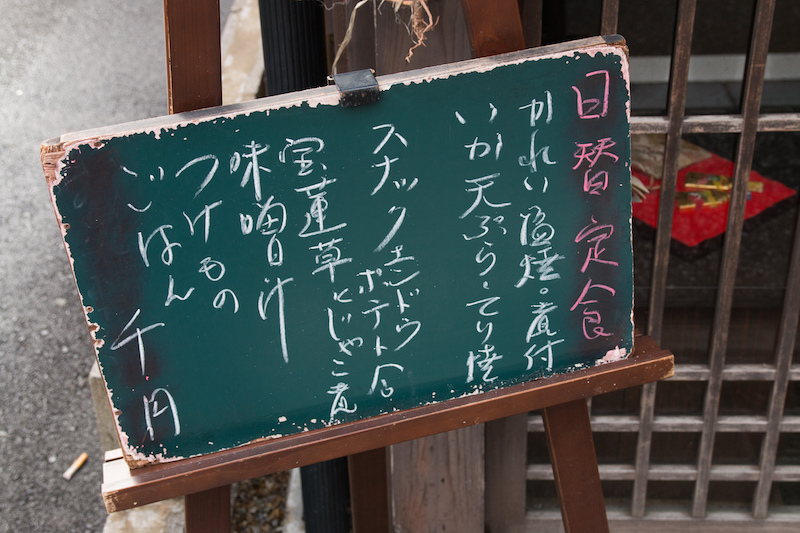 日替定食
かれい塩焼・煮付
いか天ぷら・てり焼
スナックエンドウ
ポテト合
宝蓮草とじゃこ煮
味噌汁
つけもの
ごはん
千円